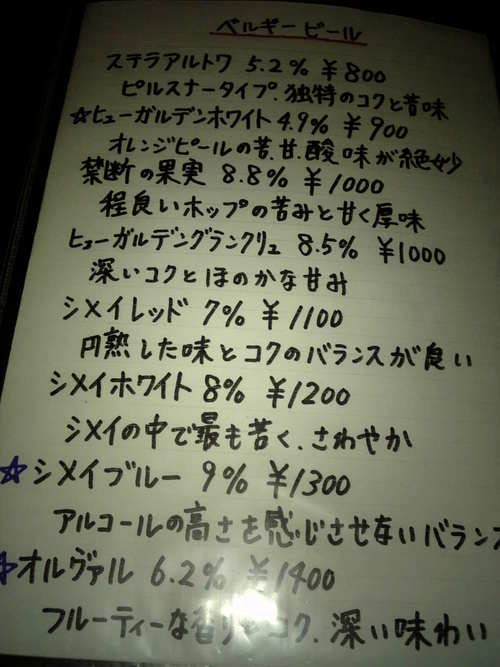 ベルギービール
ステラアルトワ 5.2% ¥800
ピルスナータイプ、独特のコクと苦味
☆ヒューガルデンホワイト 4.9% ¥900
オレンジピールの苦、甘、酸味が絶妙
禁断の果実 8.8% ¥1000
程良いホップの苦みと甘く厚味
ヒューガルデングランクリュ 8.5% ¥1000
深いコクとほのかな甘み
シメイレッド 7% ¥1100
円熟した味とコクのバランスが良い
シメイホワイト 8% ¥1200
シメイの中で最も苦く、さわやか
☆シメイブルー 9% ¥1300
アルコールの高さを感じさせないバランス
☆オルヴァル 6.2% ¥1400
フルーティーな香りとコク、深い味わい